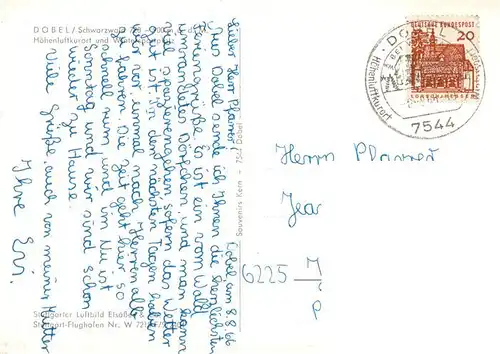 DOBEL / Schwarzwald
Höhenluftkurort und
Dobel am 8.8.66
Lieber Herr Pfarrer!
Aus Dobel sende ich Ihnen die herzlichsten
Feriengrüße. Es ist ein vom Wald
umrandetes Dörfchen, und man kann
viel spazierengehen, sofern das Wetter
gut ist. In den nächsten Tagen haben
wir vor, einmal nach Herrenalb
zu fahren. Die Zeit geht hier so
schnell rum, und im Nu ist
Sonntag und wir sind schon
wieder zu Hause.
Viele Grüße, auch von meiner Mutter
Ihre Evi.
Stuttgarter Luftbild Elsäßer &
Stuttgart-Flughafen Nr. W
Souvenirs Kern - 7542 Dobel
DEUTSCHE BUNDESPOST
20
LORSCH · HESSEN
DOBEL
Höhenluftkurort
7544
Herrn Pfarrer
6225